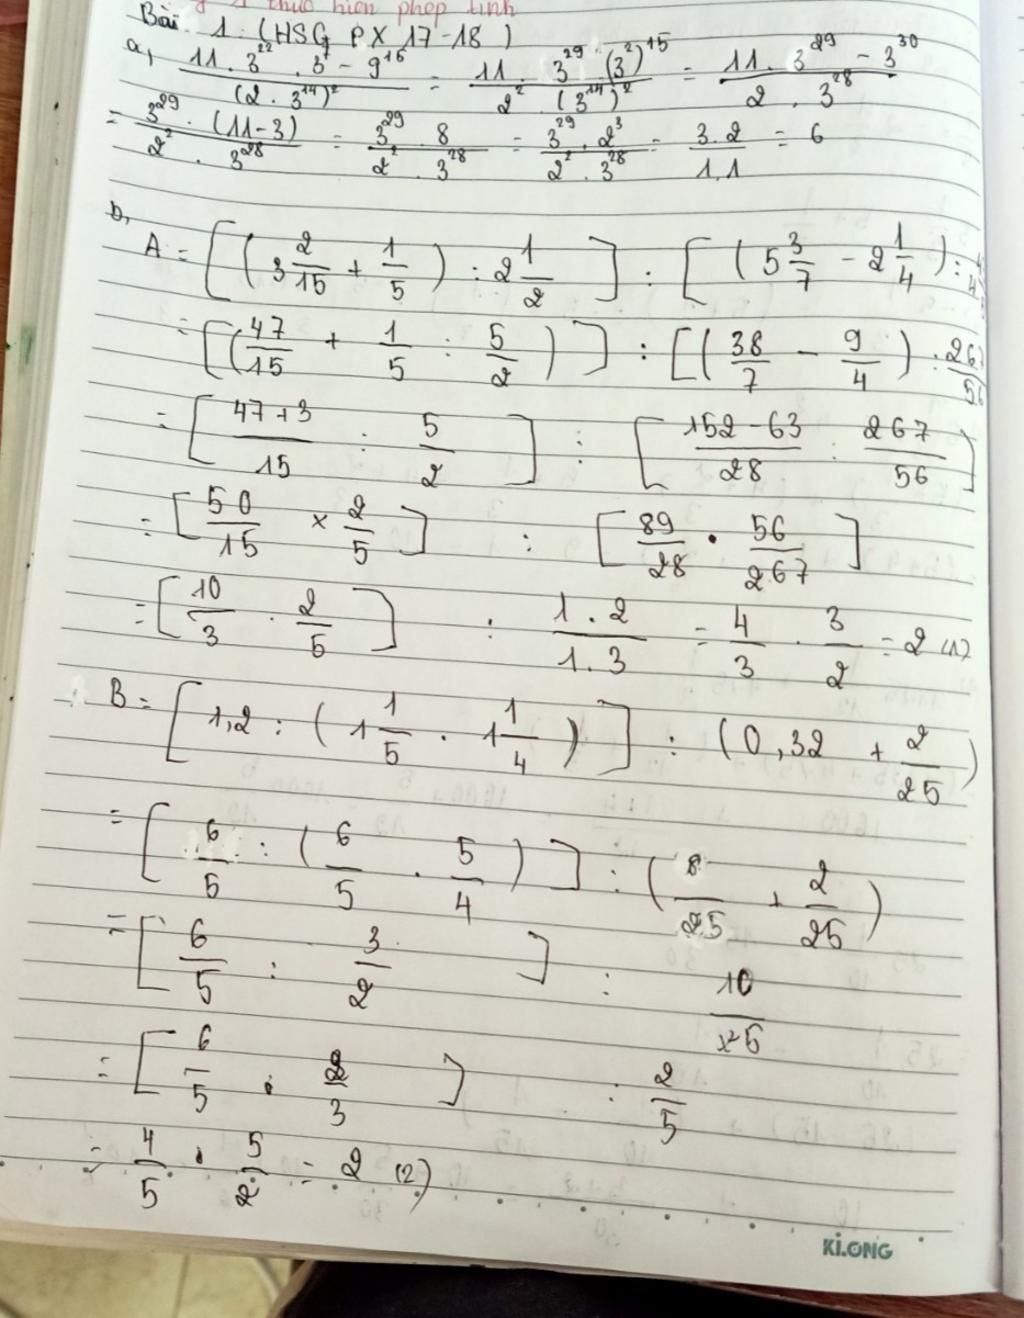 thực hiện phép tính
Bài 1: (HSG PX 17-18)
a, \frac{11 . 3^{22} . 3^7 - 9^{15}}{(2 . 3^{14})^2} = \frac{11 . 3^{29} . (3^2)^{15}}{2^2 (3^{14})^2} = \frac{11 . 3^{29} - 3^{30}}{2 . 3^{28}}
= \frac{3^{29} . (11-3)}{2^2 . 3^{28}} = \frac{3^{29} . 8}{2^2 . 3^{28}} = \frac{3^{29} . 2^3}{2^2 . 3^{28}} = \frac{3.2}{1.1} = 6
b,
A = [ ( 3\frac{2}{15} + \frac{1}{5} ) : 2\frac{1}{2} ] : [ ( 5\frac{3}{7} - 2\frac{1}{4} ) :
= [ ( \frac{47}{15} + \frac{1}{5} : \frac{5}{2} ) ] : [ ( \frac{38}{7} - \frac{9}{4} ) . \frac{267}{56}
= [ \frac{47+3}{15} : \frac{5}{2} ] : [ \frac{152-63}{28} : \frac{267}{56} ]
= [ \frac{50}{15} × \frac{2}{5} ] : [ \frac{89}{28} . \frac{56}{267} ]
= [ \frac{10}{3} . \frac{2}{5} ] : \frac{1.2}{1.3} = \frac{4}{3} . \frac{3}{2} = 2 (1)
B = [ 1,2 : ( 1\frac{1}{5} . 1\frac{1}{4} ) ] : ( 0,32 + \frac{2}{25} )
= [ \frac{6}{5} : ( \frac{6}{5} . \frac{5}{4} ) ] : ( \frac{8}{25} + \frac{2}{25} )
= [ \frac{6}{5} : \frac{3}{2} ] : \frac{10}{25}
= [ \frac{6}{5} . \frac{2}{3} ] : \frac{2}{5}
= \frac{4}{5} . \frac{5}{2} = 2 (2)
KLONG